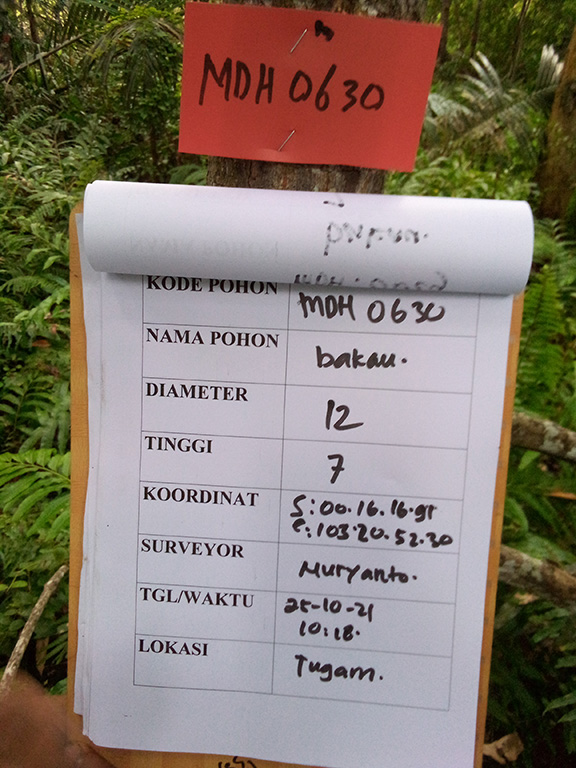 MDH 0630
KODE POHON MDH 0630
NAMA POHON bakau.
DIAMETER 12
TINGGI 7
KOORDINAT S:00.16.16.91
E:103.20.52.30
SURVEYOR Muryanto.
TGL/WAKTU 25-10-21
10:18.
LOKASI Tugam.